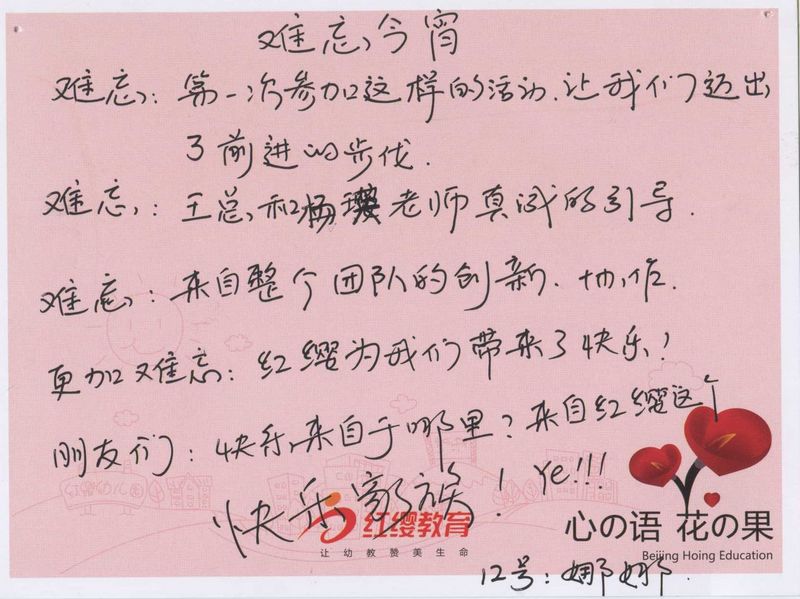 难忘今宵
难忘：第一次参加这样的活动.让我们迈出
了前进的步伐.
难忘：王总和杨瓔老师真诚的引导.
难忘：来自整个团队的创新.协作.
更加难忘：红缨为我们带来了快乐！
朋友们：快乐来自于哪里？来自红缨这个
快乐家族！ Ye!!!
红缨幼儿园
红缨教育
让幼教赞美生命
心の语 花の果
Beijing Hoing Education
12号：娜娜.